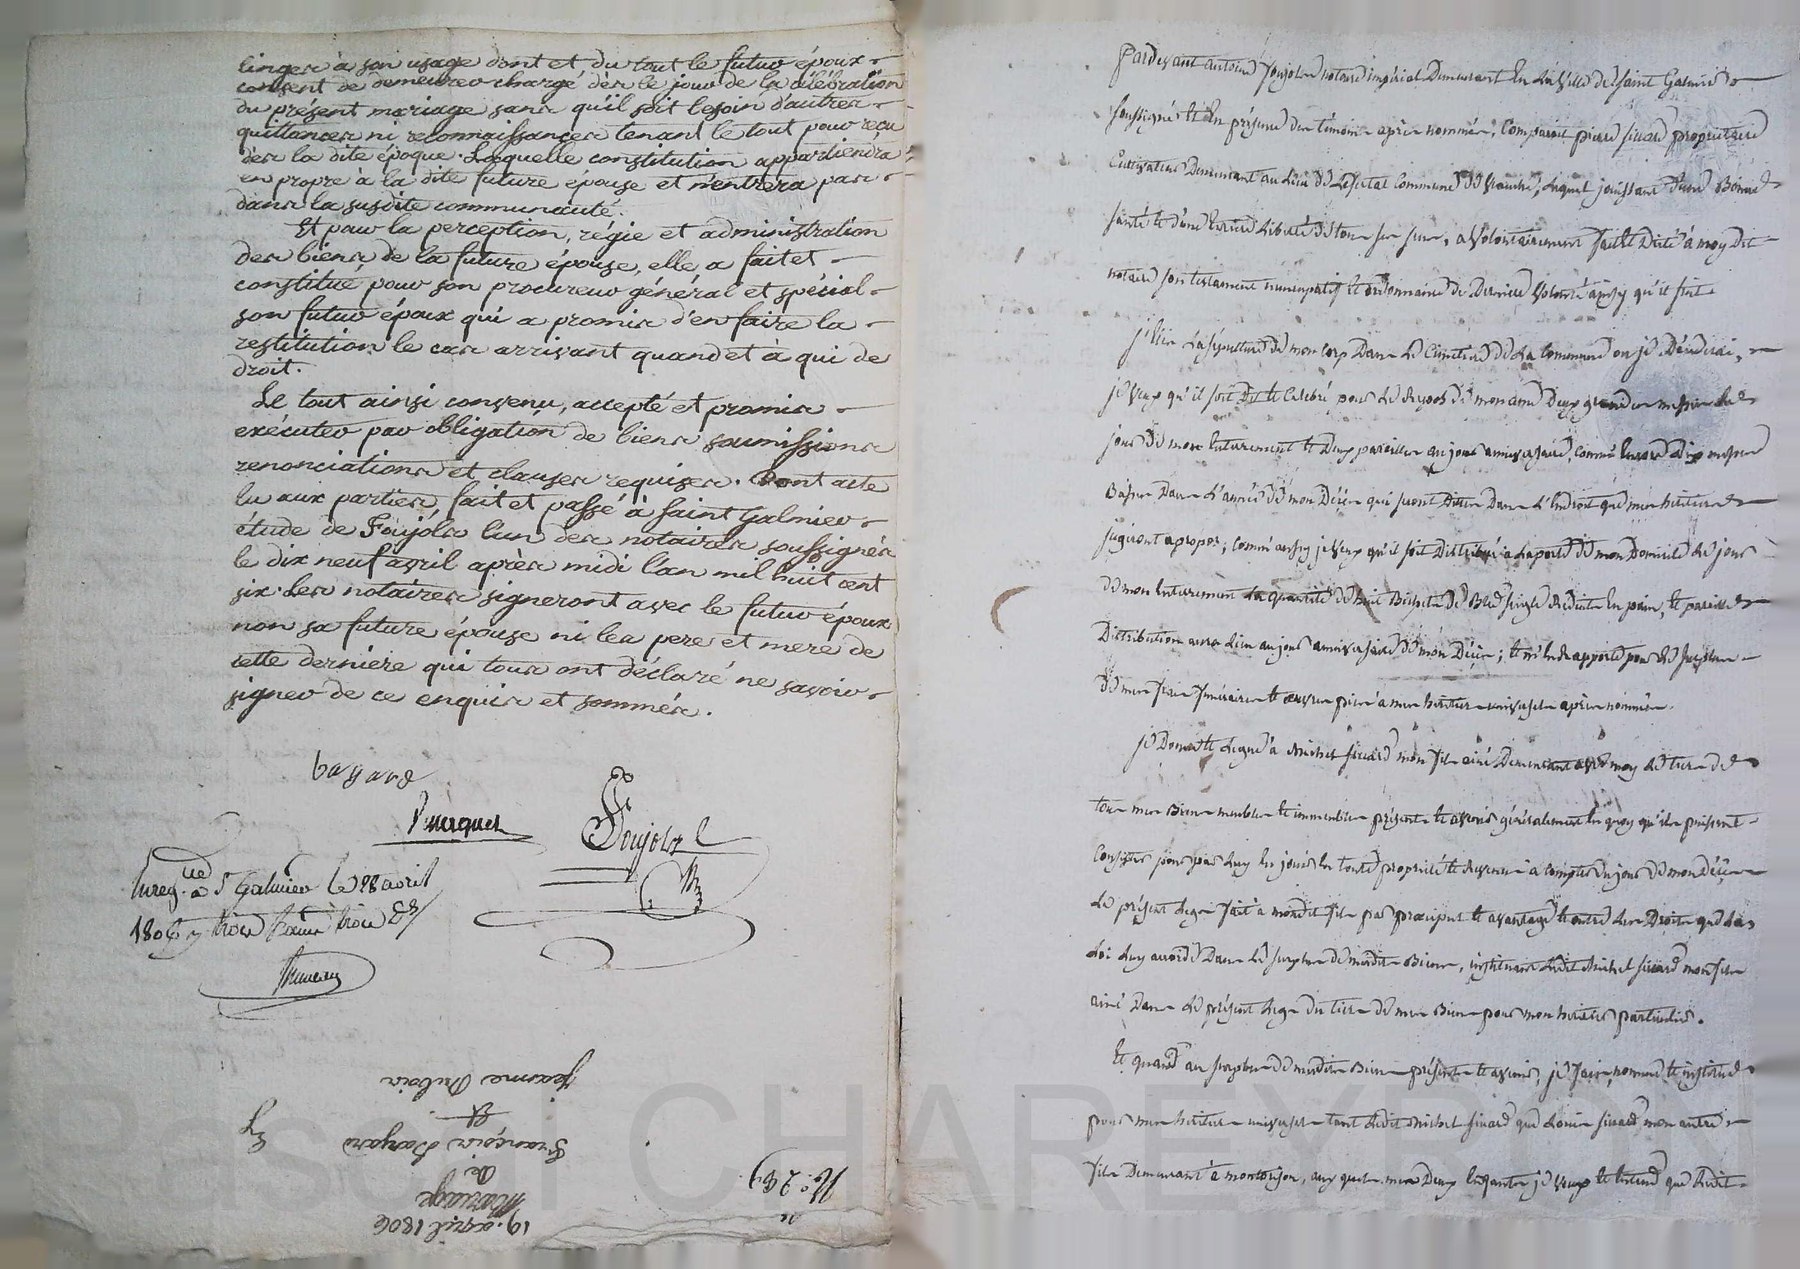 linger à son usage dont et du tout le futur époux
consent de demeurer chargé dès le jour de la célébration
du présent mariage sans qu'il soit besoin d'autres
quittances ni reconnaissances tenant le tout pour reçu
dès la dite époque. Laquelle constitution appartiendra
en propre à la dite future épouse et n'entrera pas
dans la susdite communauté.
Et pour la perception, régie et administration
des biens de la future épouse, elle a fait et
constitué pour son procureur général et spécial
son futur époux qui a promis d'en faire la
restitution le cas arrivant quand et à qui de
droit.
Le tout ainsi convenu, accepté et promis
exécuter par obligation de biens soumissions
renonciations et clauses requises. Dont acte
lu aux parties, fait et passé à Saint Galmier
étude de Foujols l'un des notaires soussignés
le dix neuf avril après midi l'an mil huit cent
six. Les notaires signeront avec le futur époux
non sa future épouse ni les pere et mere de
cette derniere qui tous ont déclaré ne savoir
signer de ce enquis et sommés.
bayard
Foujols
Enreg. à St Galmier le 28 avril
1806
Jeanne Dubois
et
François Bayard
de
Mariage
19. avril 1806
Pardevant antoine foujols notaire impérial Demeurant En la Ville de Saint Galmier
soussigné et En présence des témoins après nommés, Comparait pierre sicard propriétaire
Cultivateur Demeurant au Lieu de Commune de Lequel jouissant d'une Bonne
santé et d'une Entière Liberté de tous ses sens, a Volontairement fait et Dicté à moy Dit
notaire son testament nuncupatif et ordonnance de Dernière Volonté ainsy qu'il suit
j'Elis La sépulture de mon Corp Dans Le Cimetière de La Commune ou je Décéderai,
je Veux qu'il soit Dit et Célébré pour Le Repos de mon ame Deux grandes messes Le
jour de mon Enterrement et Deux pareilles au jour anniversaire, comme Encore Dix messes
Basses Dans L'année de mon Décès qui seront Dittes Dans L'Endroit que mes héritiers
jugeront apropos; Comme aussy je Veux qu'il soit Distribué a La porte de mon Domicile Le jour
de mon Enterrement La quantité de huit Bichets de Bled seigle Réduits En pain, et pareille
Distribution aura Lieu au jour anniversaire de mon Décès; et m'En Rapporte pour Le surplus
de mes frais funéraires et œuvres pies à mes héritiers universels après nommés.
je Donne et Legue à Michel sicard mon fils ainé Demeurant avec moy Le tiers de
tous mes Biens meubles et immeubles présents et avenir généralement En quoy qu'ils puissent
Consister pour par Luy En jouir En toute propriété et Revenu à compter du jour de mon Décès
Le présent Legs fait a mondit fils par préciput et avantage et outre Les Droits que La
Loi Luy accorde Dans Le surplus de mesdits Biens, instituant Ledit Michel sicard mon fils
ainé Dans Le présent Legs du tiers de mes Biens pour mon héritier particulier.
Et quand au surplus de mesdits Biens présents et avenir, je fais, nomme et institue
pour mes héritiers universels tant Ledit Michel sicard que Louis sicard mon autre
fils Demeurant à montbrison, aux quels mes Deux Enfants je Veux et Entend que Ledit
Pascal CHAREYRON